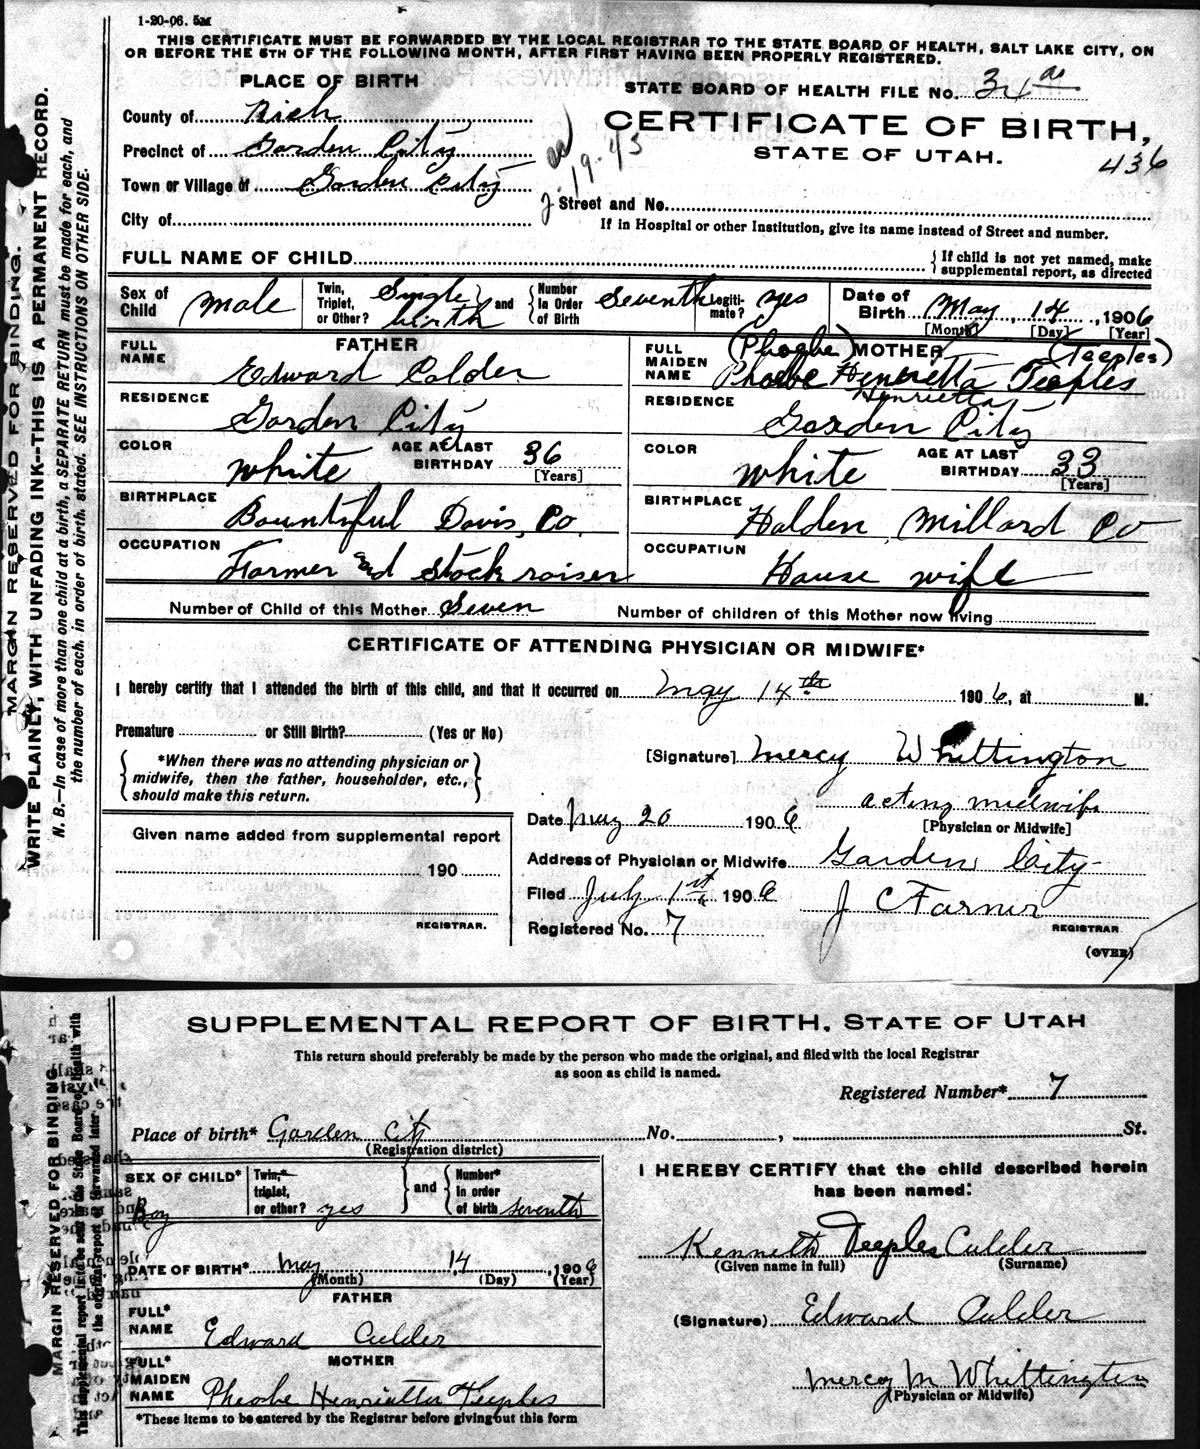 1-20-06. 5M
THIS CERTIFICATE MUST BE FORWARDED BY THE LOCAL REGISTRAR TO THE STATE BOARD OF HEALTH, SALT LAKE CITY, ON
OR BEFORE THE 5TH OF THE FOLLOWING MONTH, AFTER FIRST HAVING BEEN PROPERLY REGISTERED.
PLACE OF BIRTH
STATE BOARD OF HEALTH FILE No.
County of Rich
CERTIFICATE OF BIRTH,
Precinct of Garden City
STATE OF UTAH.
436
Town or Village of Garden City
19-43
Street and No.
City of
If in Hospital or other Institution, give its name instead of Street and number.
FULL NAME OF CHILD
If child is not yet named, make
supplemental report, as directed
Sex of Child Male
Twin, Triplet, or Other? Single birth and Number in Order of Birth Seventh
Legiti-mate? yes
Date of Birth May 14, 1906
[Month] [Day] [Year]
FATHER
FULL NAME Edward Calder
RESIDENCE Garden City
COLOR White
AGE AT LAST BIRTHDAY 36
[Years]
BIRTHPLACE Bountiful Davis, Co.
OCCUPATION Farmer and Stock raiser
(Phoebe) MOTHER (Teeples)
FULL MAIDEN NAME Phoebe Henrietta Teeples
Henrietta
RESIDENCE Garden City
COLOR White
AGE AT LAST BIRTHDAY 33
[Years]
BIRTHPLACE Holden, Millard Co
OCCUPATION House wife
Number of Child of this Mother Seven
Number of children of this Mother now living
CERTIFICATE OF ATTENDING PHYSICIAN OR MIDWIFE*
I hereby certify that I attended the birth of this child, and that it occurred on May 14th 1906, at M.
Premature or Still Birth? (Yes or No)
*When there was no attending physician or
midwife, then the father, householder, etc.,
should make this return.
[Signature] Mercy Whittington
acting midwife
[Physician or Midwife]
Date May 20 1906
Given name added from supplemental report
190
REGISTRAR.
Address of Physician or Midwife Garden City
Filed July 1st 1906
J C Farner
REGISTRAR
Registered No. 7
(OVER)
MARGIN RESERVED FOR BINDING.
WRITE PLAINLY, WITH UNFADING INK--THIS IS A PERMANENT RECORD.
N. B.—In case of more than one child at a birth, a SEPARATE RETURN must be made for each, and
the number of each, in order of birth, stated. SEE INSTRUCTIONS ON OTHER SIDE.
SUPPLEMENTAL REPORT OF BIRTH, STATE OF UTAH
This return should preferably be made by the person who made the original, and filed with the local Registrar
as soon as child is named.
Registered Number* 7
Place of birth* Garden City No. , St.
(Registration district)
SEX OF CHILD* Boy
Twin,* triplet, or other? yes and Number* in order of birth seventh
DATE OF BIRTH* May 14, 1906
(Month) (Day) (Year)
FATHER
FULL* NAME Edward Calder
MOTHER
FULL* MAIDEN NAME Pheobe Henrietta Teeples
*These items to be entered by the Registrar before giving out this form
I HEREBY CERTIFY that the child described herein
has been named:
Kenneth Teeples Calder
(Given name in full) (Surname)
(Signature) Edward Calder
Mercy M Whittington
(Physician or Midwife)
MARGIN RESERVED FOR BINDING
This supplemental report is to be sent to the State Board of Health with
the original report or forwarded later